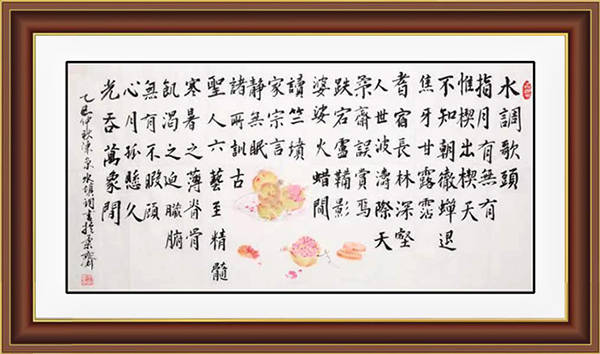 水調歌頭
指月有無有
惟楔出楔天
不知朝徹蟬退
焦牙甘露
耆宿長林深壑
人世波濤際天
桑齋誤賞焉
跌宕盧影
婆娑火蜡間
讀竺墳
家宗言
靜無眠
諸兩訓古
聖人六藝至精髓
寒暑之薄脊骨
飢渴之迫臟腑
無有不暇顧
心月孤懸久
光吞萬象間
乙巳仲秋陳泉水填詞書於桑齋